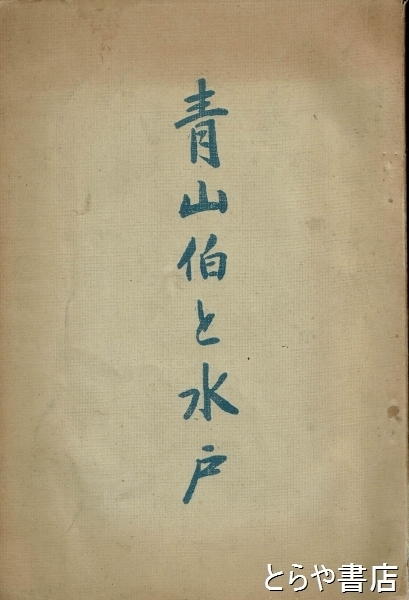 青山伯と水戸
とらや書店